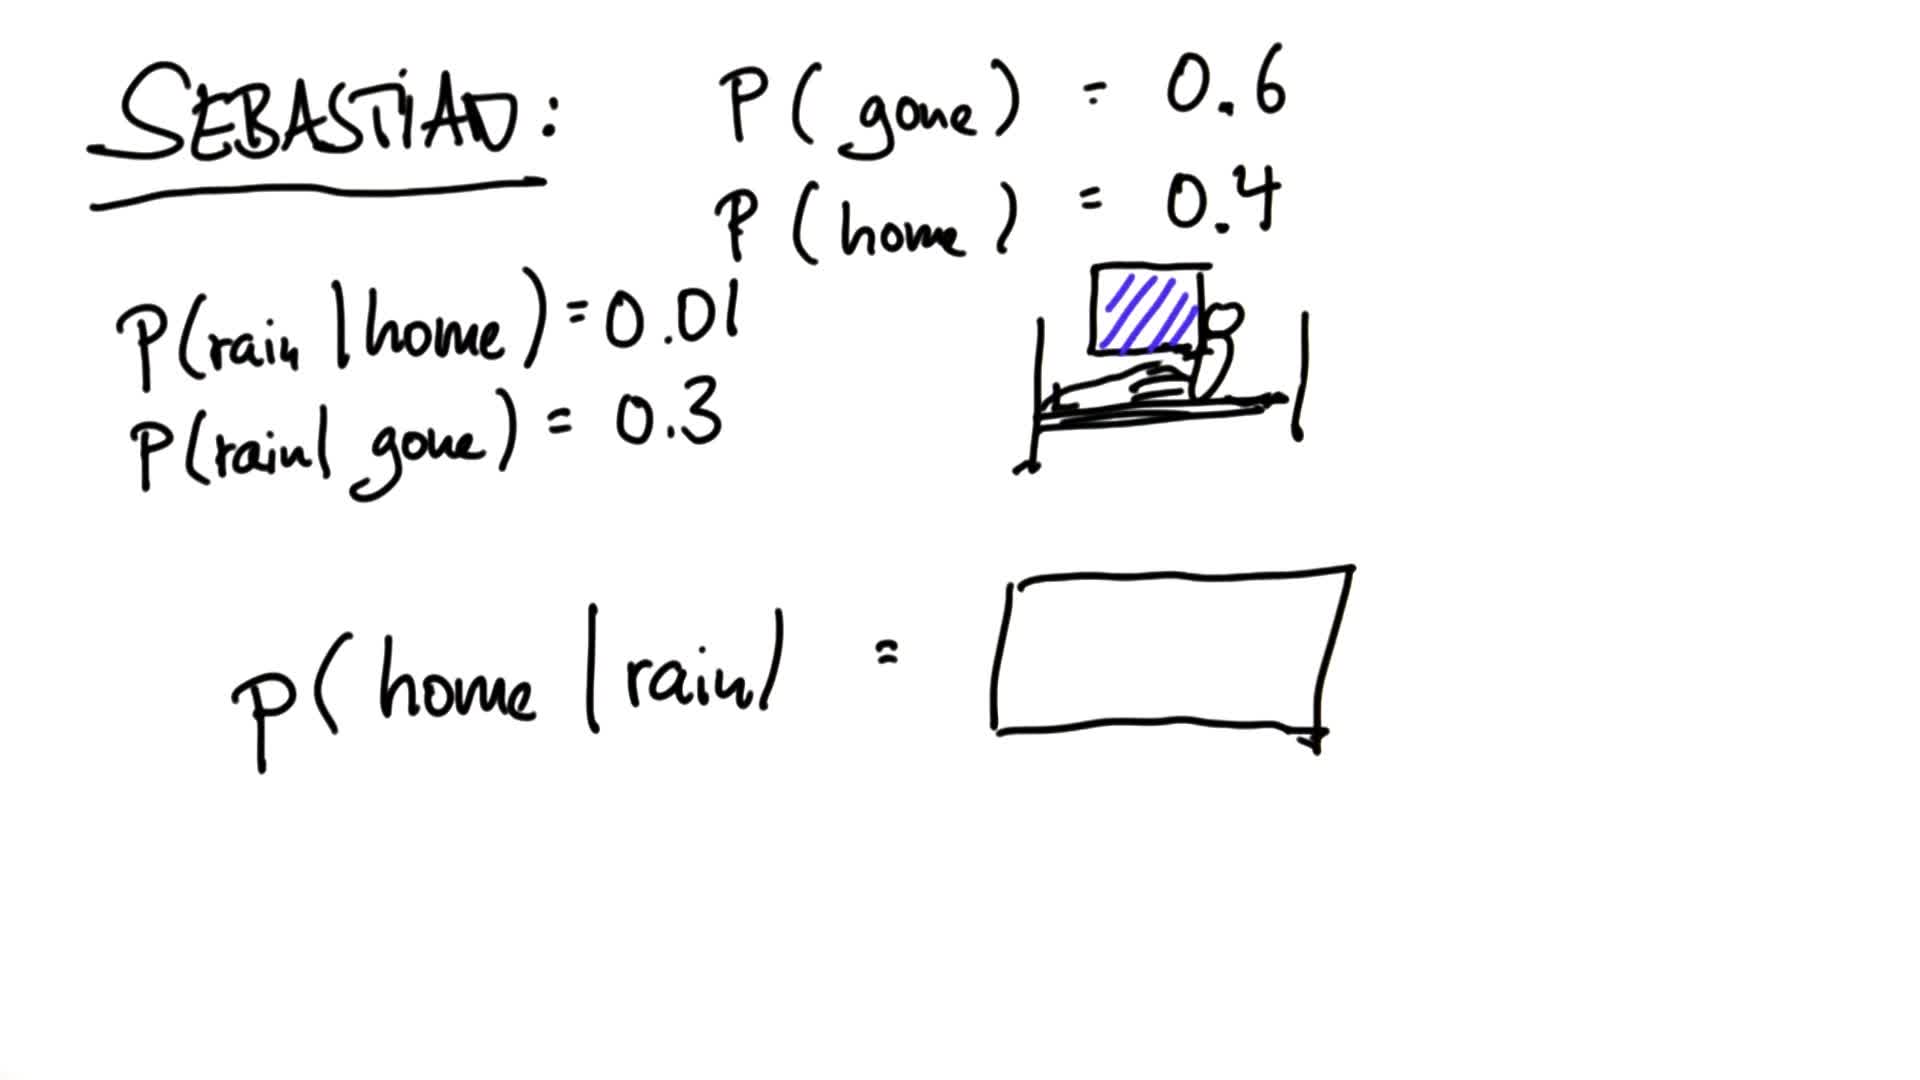 SEBASTIAN:
P(gone) = 0.6
P(home) = 0.4
P(rain | home) = 0.01
P(rain | gone) = 0.3
P(home | rain) =